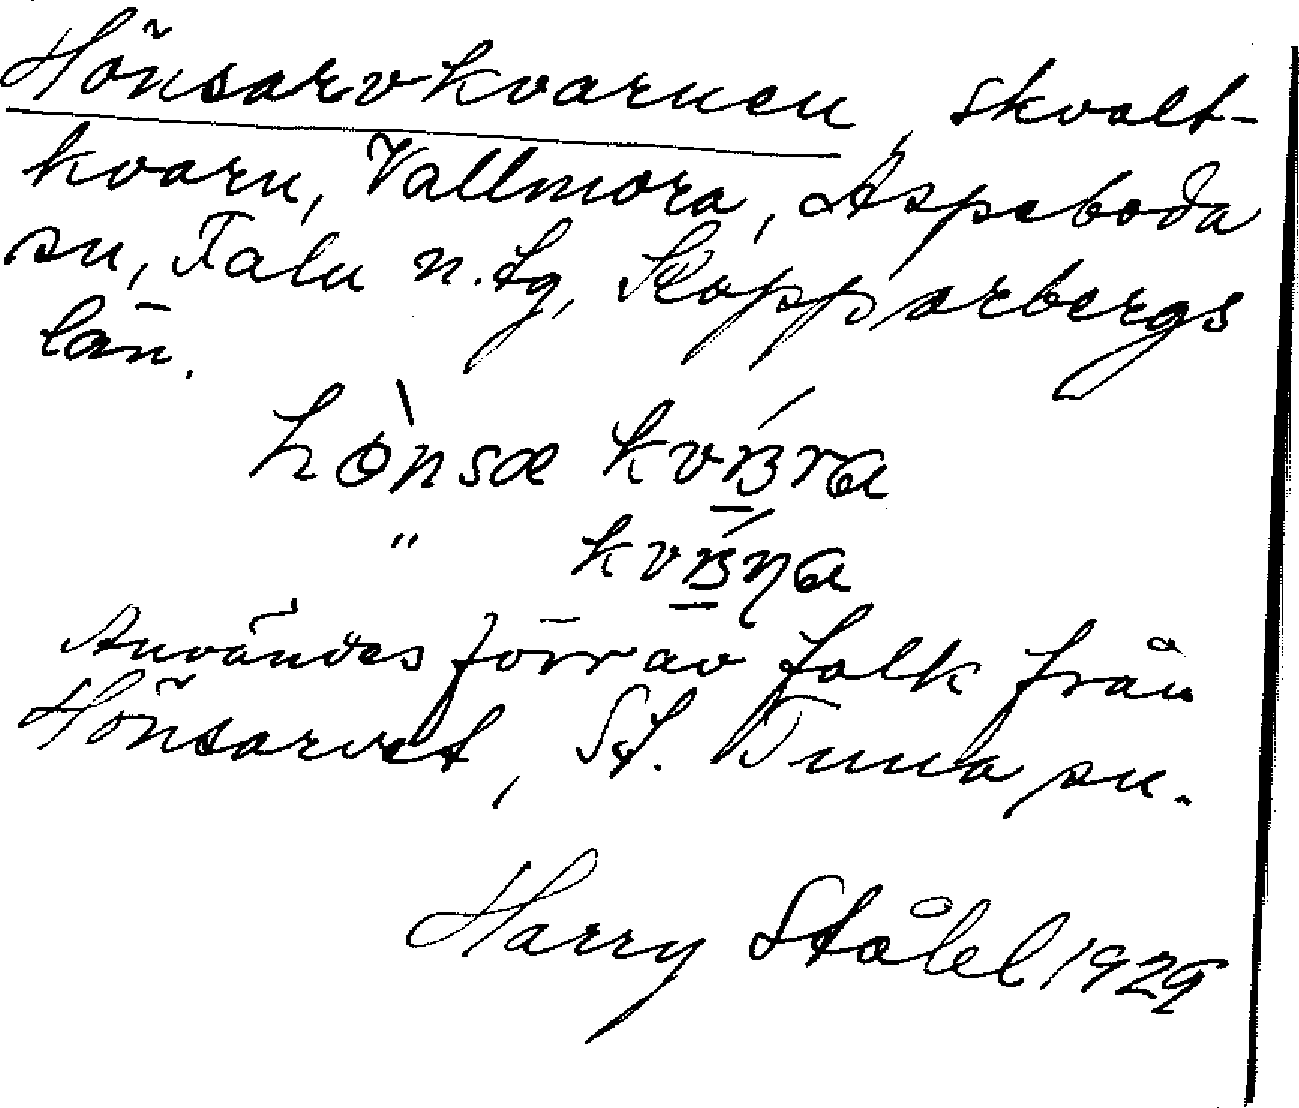 Hönsarvkvarnen, skvalt-
kvarn, Vallmora, Aspeboda
sn, Falu n. tg, Kopparbergs
län.
Användes förr av folk från
Hönsarvet, St. Tuna sn.
Harry Ståhl 1929